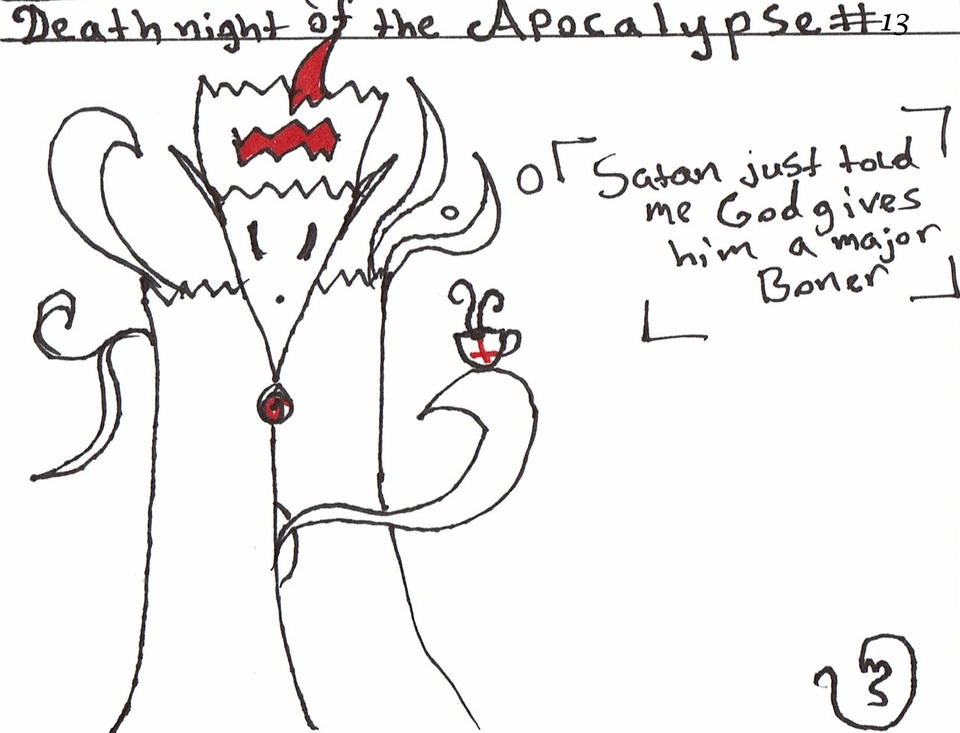 Deathnight of the Apocalypse #13
Satan just told
me God gives
him a major
Boner